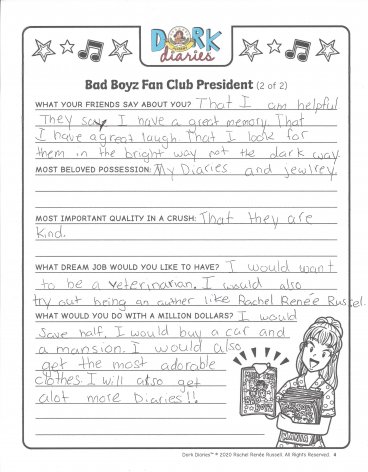 DORK
diaries
Bad Boyz Fan Club President (2 of 2)
WHAT YOUR FRIENDS SAY ABOUT YOU? That I am helpful
They say I have a great memory. That
I have a great laugh That I look for
them in the bright way not the dark way
MOST BELOVED POSSESSION: My Diaries and jewlrey
MOST IMPORTANT QUALITY IN A CRUSH: That they are
kind.
WHAT DREAM JOB WOULD YOU LIKE TO HAVE? I would want
to be a veterinarian. I would also
try out being an auther like Rachel Renée Russel.
WHAT WOULD YOU DO WITH A MILLION DOLLARS? I would
Save half. I would buy a car and
a mansion. I would also
get the most adorable
clothes. I will also get
alot more Diaries!!
Dork Diaries™ © 2020 Rachel Renée Russell. All Rights Reserved. 4